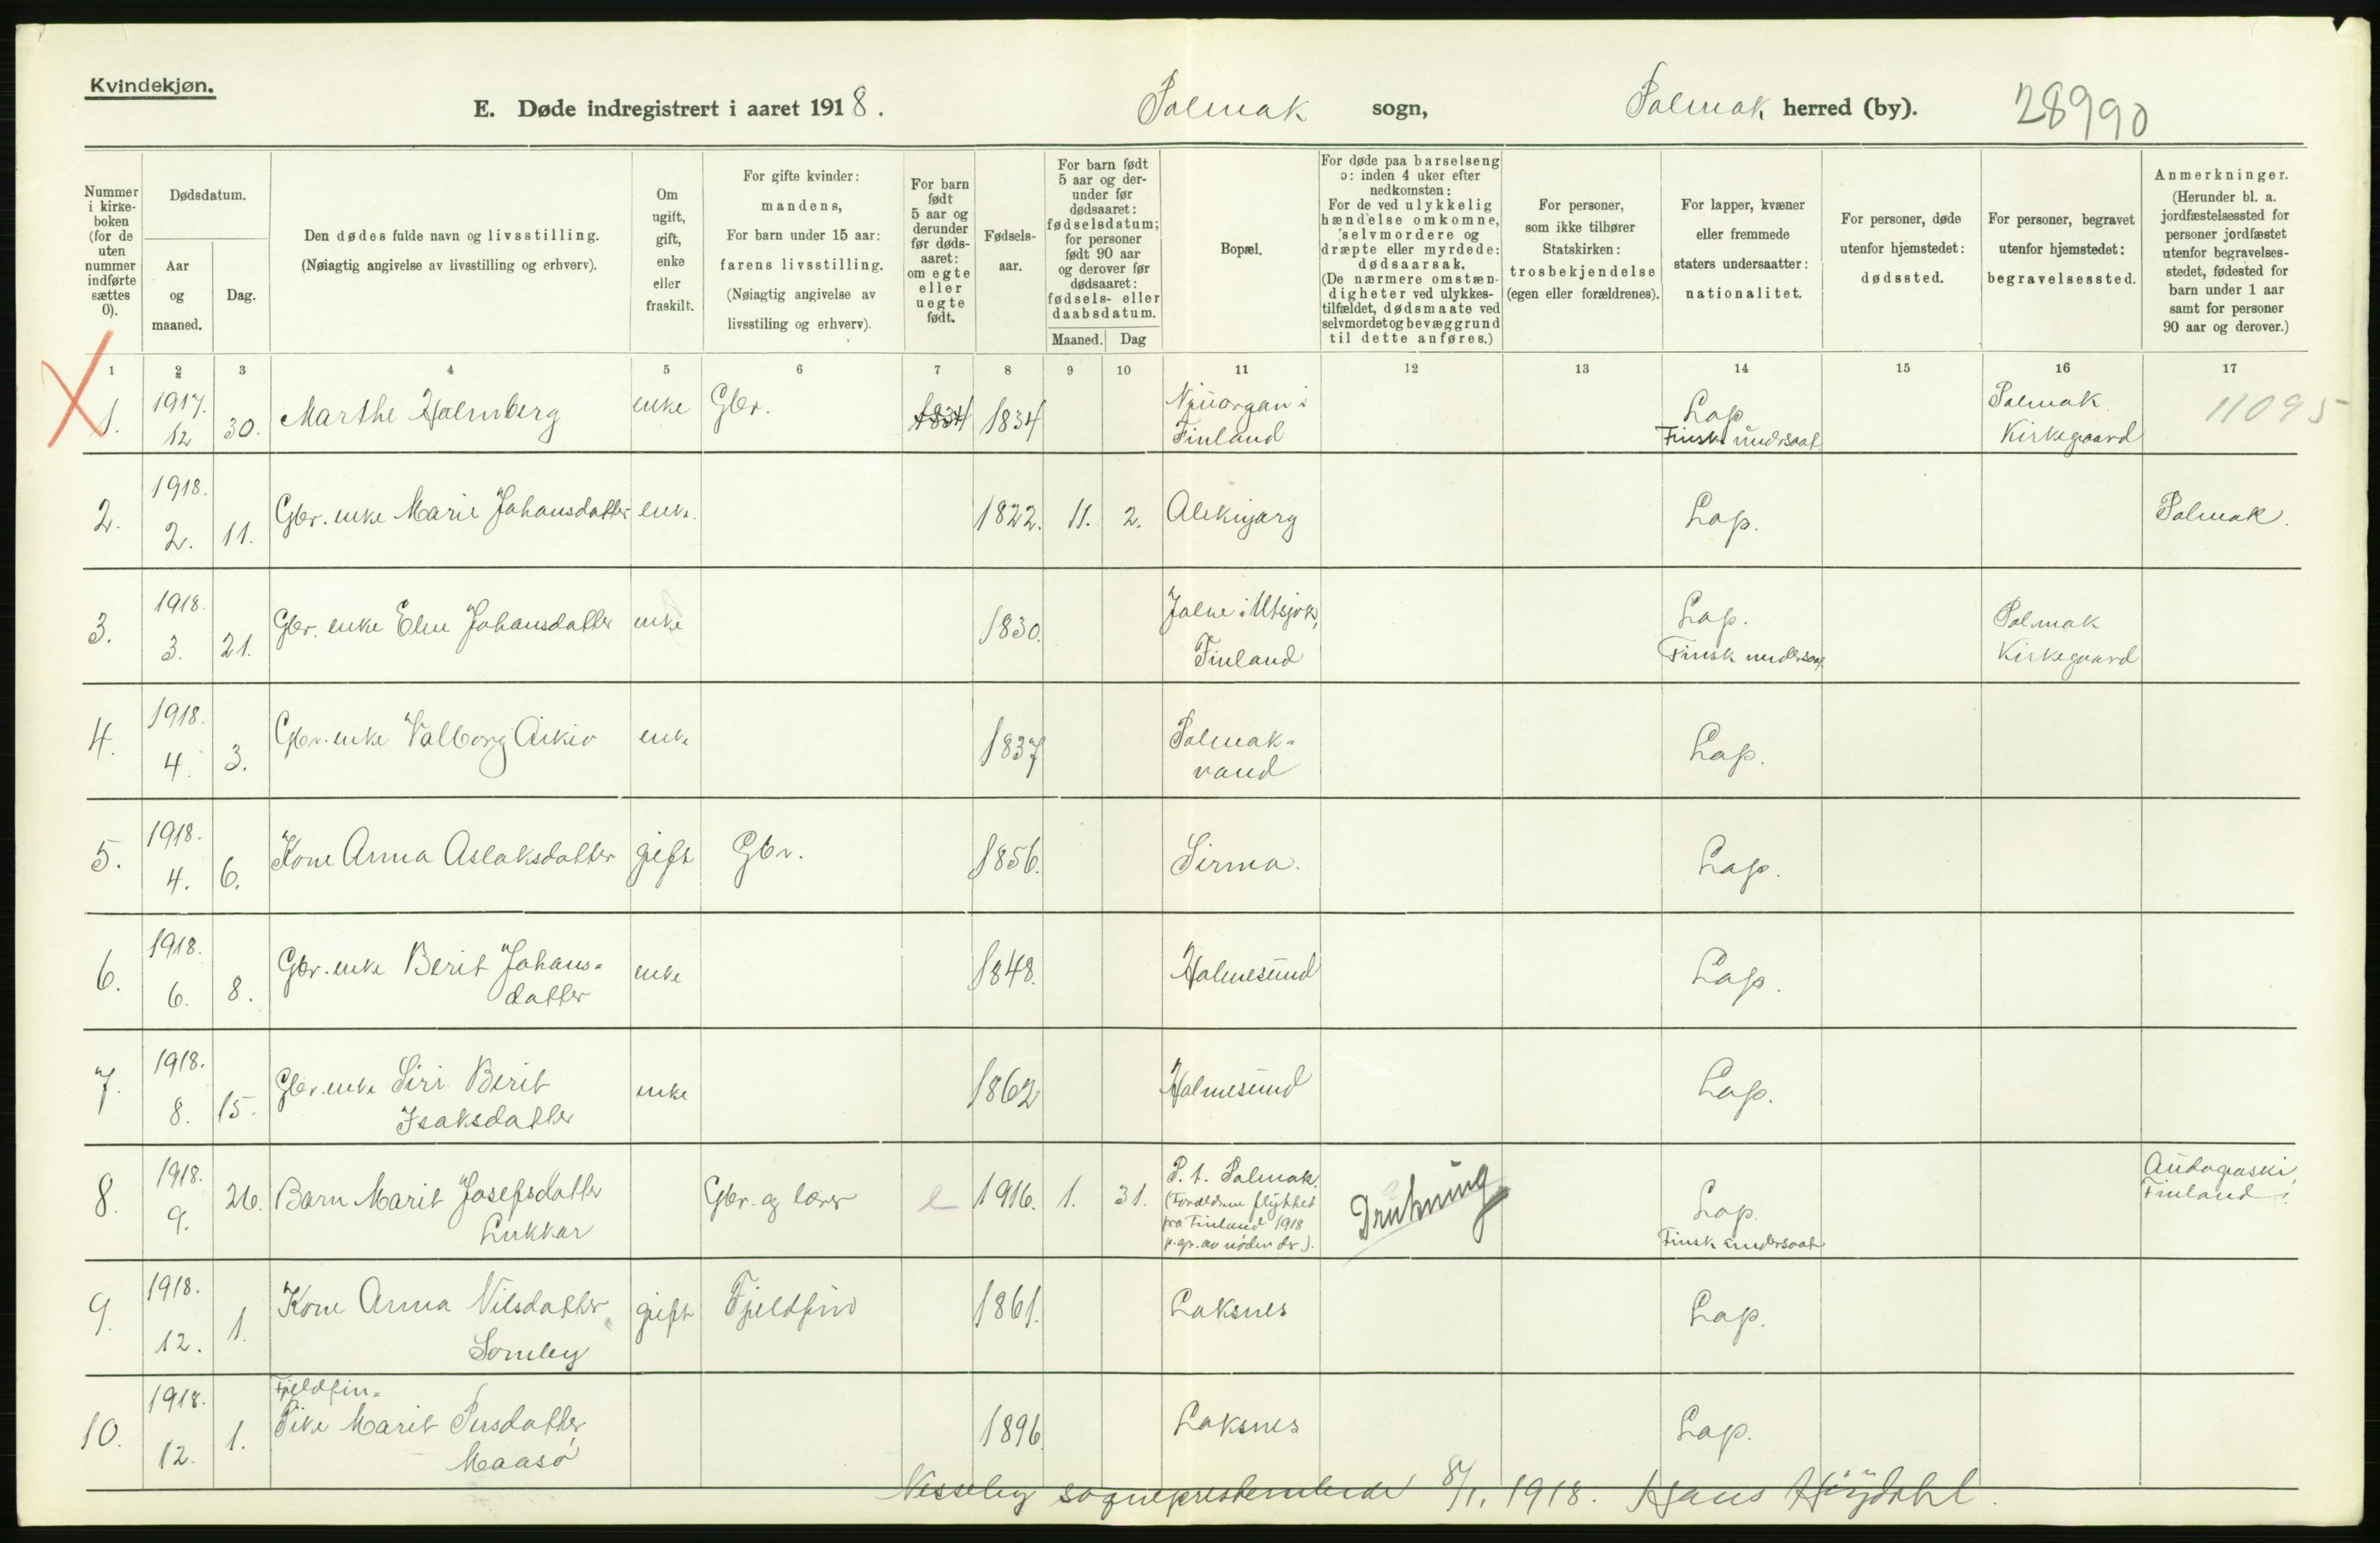 Kvindekjøn.
E. Døde indregistrert i aaret 1918. Polmak sogn, Polmak herred (by). 28990
Nummer i kirke-boken (for de uten nummer indførte sættes 0).
Dødsdatum.
Aar og maaned.
Dag.
Den dødes fulde navn og livsstilling.
(Nøiagtig angivelse av livsstilling og erhverv).
Om ugift, gift, enke eller fraskilt.
For gifte kvinder: mandens,
For barn under 15 aar: farens livsstilling.
(Nøiagtig angivelse av livsstiling og erhverv).
For barn født 5 aar og derunder før døds-aaret: om egte eller uegte født.
Fødsels-aar.
For barn født 5 aar og der-under før dødsaaret: fødselsdatum; for personer født 90 aar og derover før dødsaaret: fødsels- eller daabsdatum.
Maaned. Dag
Bopæl.
For døde paa barselseng ɔ: inden 4 uker efter nedkomsten:
For de ved ulykkelig hændelse omkomne, selvmordere og dræpte eller myrdede: dødsaarsak.
(De nærmere omstæn-digheter ved ulykkes-tilfældet, dødsmaate ved selvmordet og bevæggrund til dette anføres.)
For personer, som ikke tilhører Statskirken: trosbekjendelse (egen eller forældrenes).
For lapper, kvæner eller fremmede staters undersaatter: nationalitet.
For personer, døde utenfor hjemstedet: dødssted.
For personer, begravet utenfor hjemstedet: begravelsessted.
Anmerkninger.
(Herunder bl. a. jordfæstelsessted for personer jordfæstet utenfor begravelses-stedet, fødested for barn under 1 aar samt for personer 90 aar og derover.)
1 2 3 4 5 6 7 8 9 10 11 12 13 14 15 16 17
1. 1917. 12 30. Marthe Holmberg enke Gbr. 1834 1834 Njuorgan i Finland Lap Finsk undersaat. Polmak Kirkegaard 11095
2. 1918. 2. 11. Gbr. enke Marie Johansdatter enke. 1822. 11. 2. Aleknjarg Lap. Polmak.
3. 1918. 3. 21. Gbr. enke Elen Johansdatter enke 1830. Jalve i Utsjok, Finland Lap. Finsk undersaat Polmak Kirkegaard
4. 1918. 4. 3. Gbr. enke Valborg Aikio enke 1837 Polmak-vand Lap.
5. 1918. 4. 6. Kone Anna Aslaksdatter gift Gbr. 1856. Sirma. Lap.
6. 1918. 6. 8. Gbr. enke Berit Johans-datter enke 1848. Holmesund Lap.
7. 1918. 8. 15. Gbr. enke Siri Berit Isaksdatter enke 1862 Holmesund Lap.
8. 1918. 9. 26. Barn Marit Josefsdatter Lukkar Gbr. og lærer e 1916. 1. 31. P. t. Polmak. (Forældrene flygtet fra Finland 1918 p. gr. av nöden der). Drukning Lap. Finsk undersaat Finland.
9. 1918. 12. 1. Kone Anna Nilsdatter Somby gift Fjeldfin 1861. Laksnes Lap.
10. 1918. 12. 1. Fjeldfin-Pike Marit Persdatter Maasø 1896. Laksnes Lap.
Nesseby sogneprestembede 8/1. 1918. Hans Høydahl.